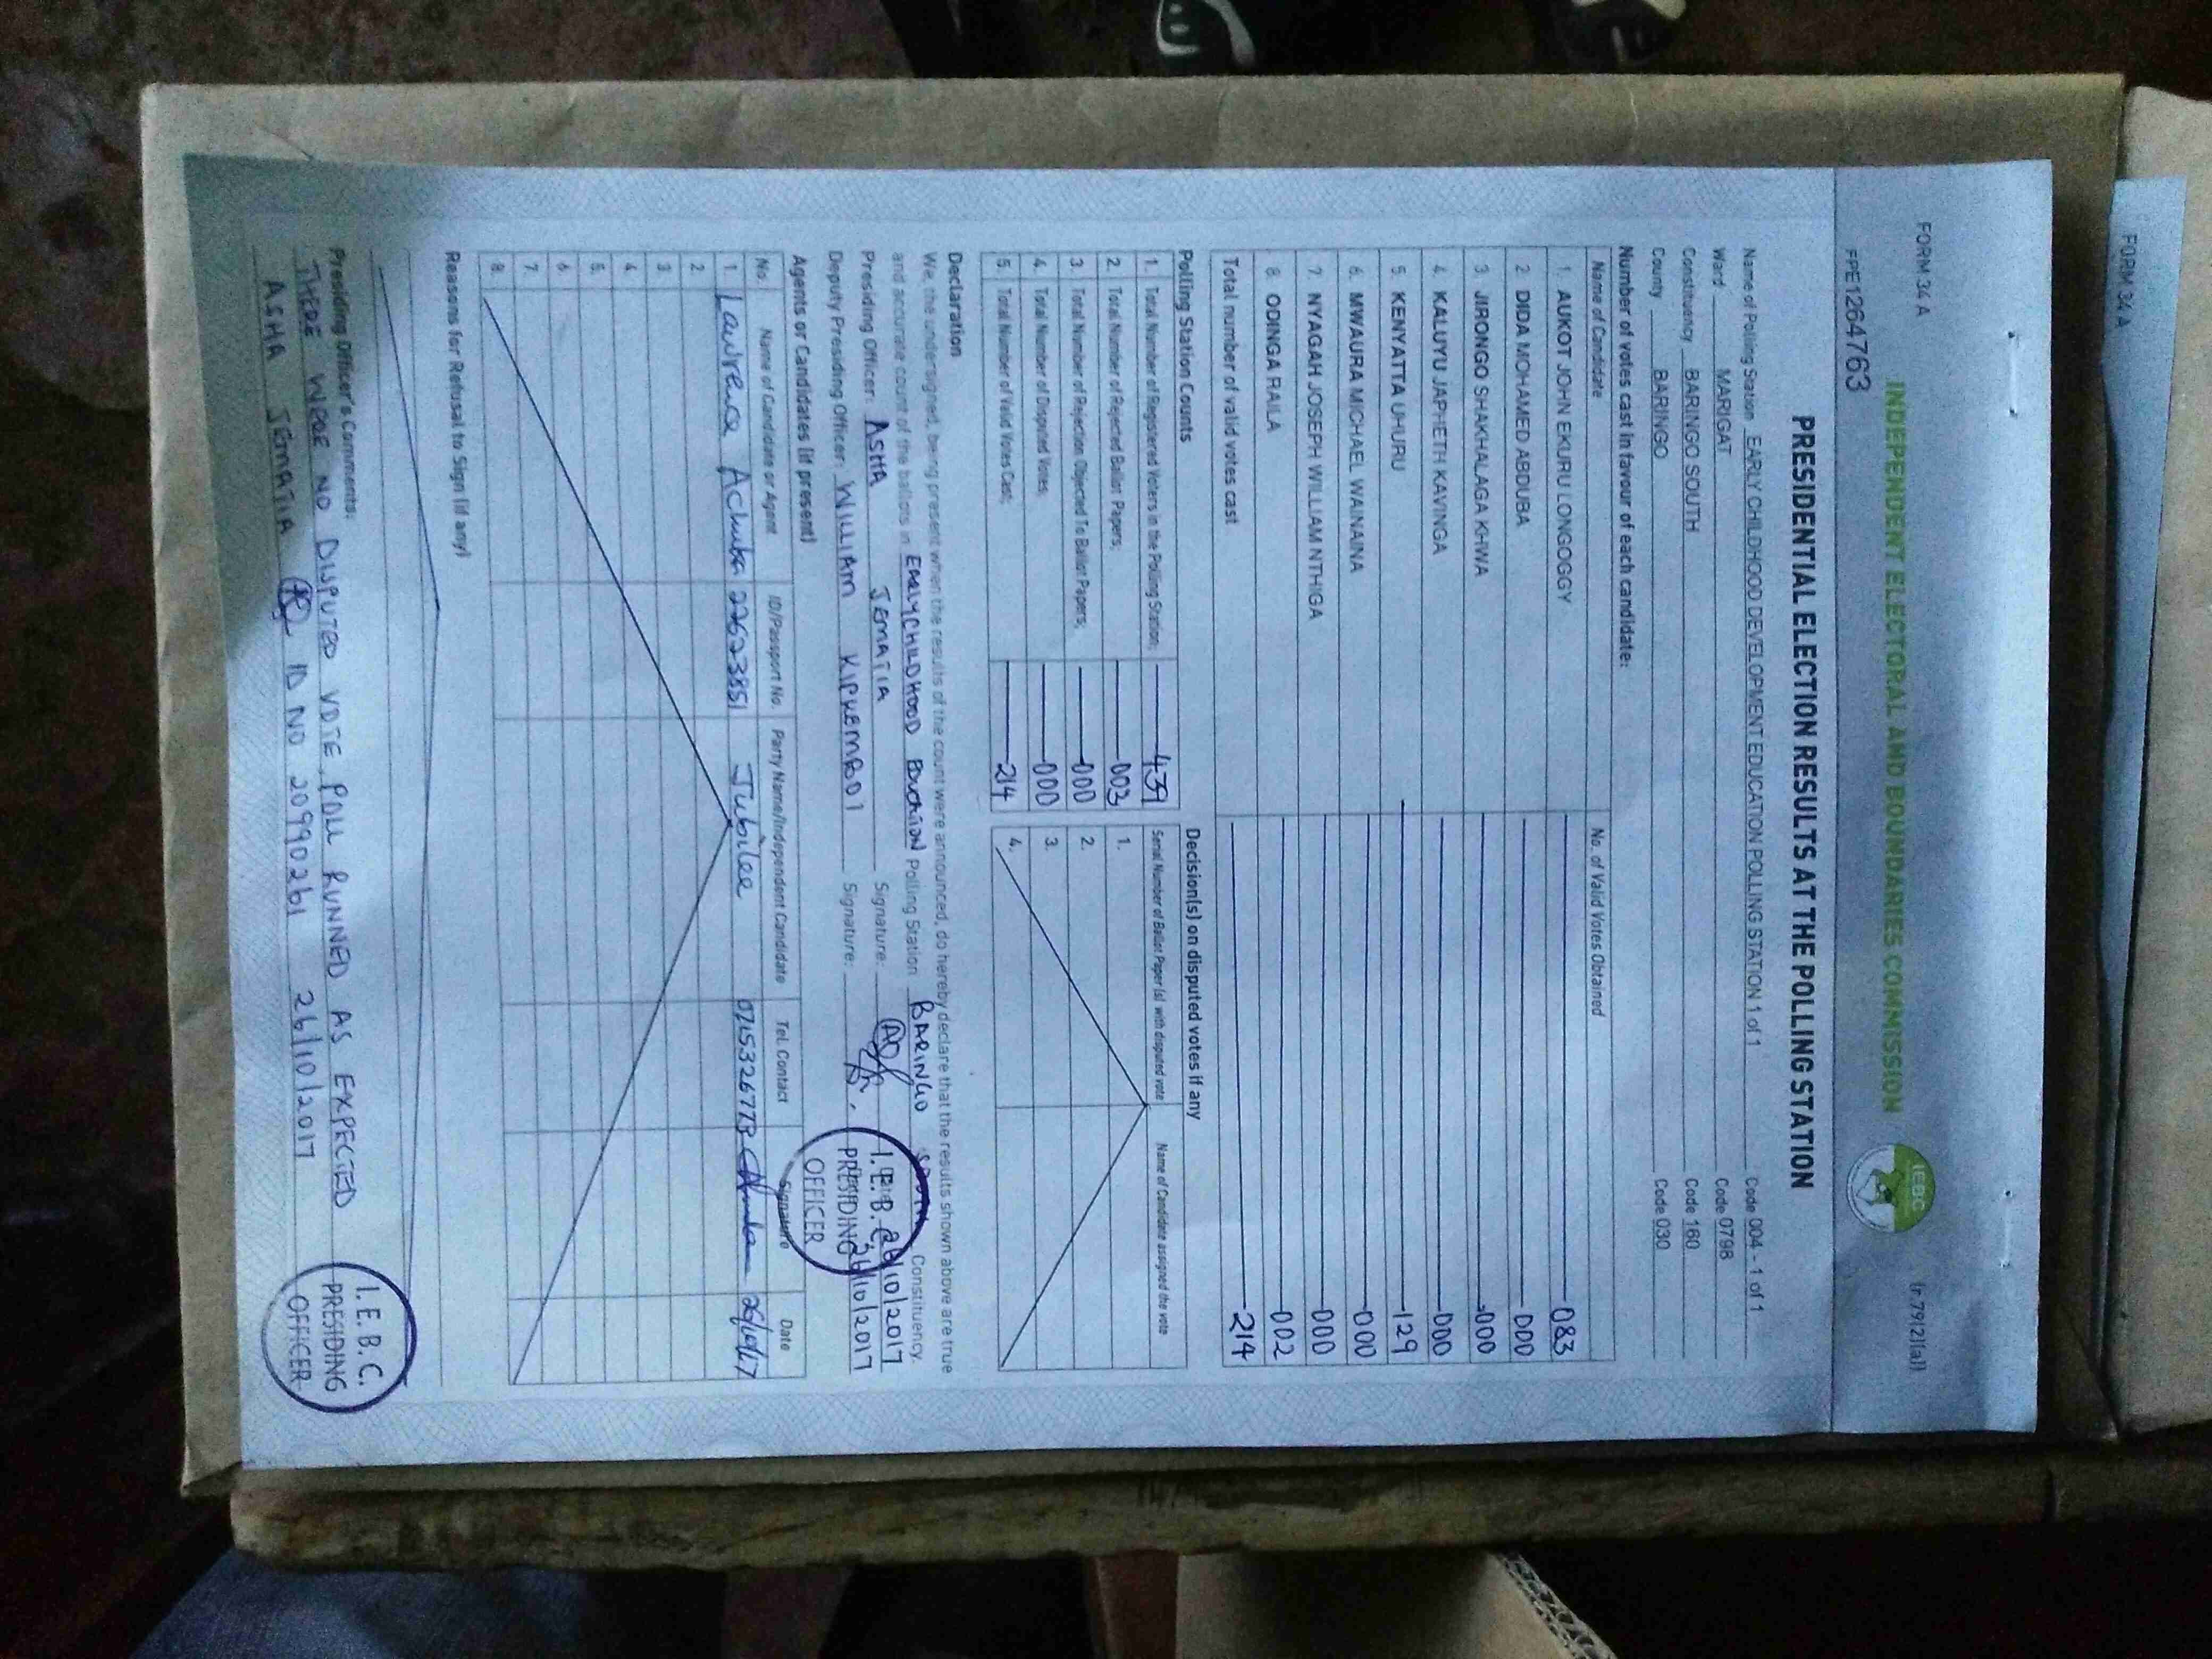 FORM 34 A
FORM 34 A
(r.79(2)(a))
INDEPENDENT ELECTORAL AND BOUNDARIES COMMISSION
IEBC
FPE1264763
PRESIDENTIAL ELECTION RESULTS AT THE POLLING STATION
Name of Polling Station EARLY CHILDHOOD DEVELOPMENT EDUCATION POLLING STATION 1 of 1 Code 004 - 1 of 1
Ward MARIGAT Code 0798
Constituency BARINGO SOUTH Code 160
County BARINGO Code 030
Number of votes cast in favour of each candidate:
Name of Candidate No. of Valid Votes Obtained
1. AUKOT JOHN EKURU LONGOGGY 083
2. DIDA MOHAMED ABDUBA 000
3. JIRONGO SHAKHALAGA KHWA 000
4. KALUYU JAPHETH KAVINGA 000
5. KENYATTA UHURU 129
6. MWAURA MICHAEL WAINAINA 000
7. NYAGAH JOSEPH WILLIAM NTHIGA 000
8. ODINGA RAILA 002
Total number of valid votes cast 214
Polling Station Counts
1. Total Number of Registered Voters in the Polling Station; 439
2. Total Number of Rejected Ballot Papers; 003
3. Total Number of Rejection Objected To Ballot Papers; 000
4. Total Number of Disputed Votes; 000
5. Total Number of Valid Votes Cast; 214
Decision(s) on disputed votes if any
Serial Number of Ballot Paper (s) with disputed vote Name of Candidate assigned the vote
1.
2.
3.
4.
Declaration
We, the undersigned, being present when the results of the count were announced, do hereby declare that the results shown above are true
and accurate count of the ballots in EARLYCHILDHOOD EDUCATION Polling Station BARINGO SOUTH Constituency.
Presiding Officer: ASHA JEMATIA Signature: 26/10/2017
Deputy Presiding Officer: WILLIAM KIPKEMBOI Signature: 26/10/2017
I.E.B.C.
PRESIDING
OFFICER
Agents or Candidates (if present)
No. Name of Candidate or Agent ID/Passport No. Party Name/Independent Candidate Tel. Contact Signature Date
1 Lawrence Achuka 22623851 Jubilee 0715326773 26/10/17
2.
3
4.
5.
6
7.
8.
Reasons for Refusal to Sign (if any)
Presiding Officer's Comments:
THERE WERE NO DISPUTED VOTE POLL RUNNED AS EXPECTED
ASHA JEMATIA ID NO 20990261 26/10/2017
I.E.B.C.
PRESIDING
OFFICER